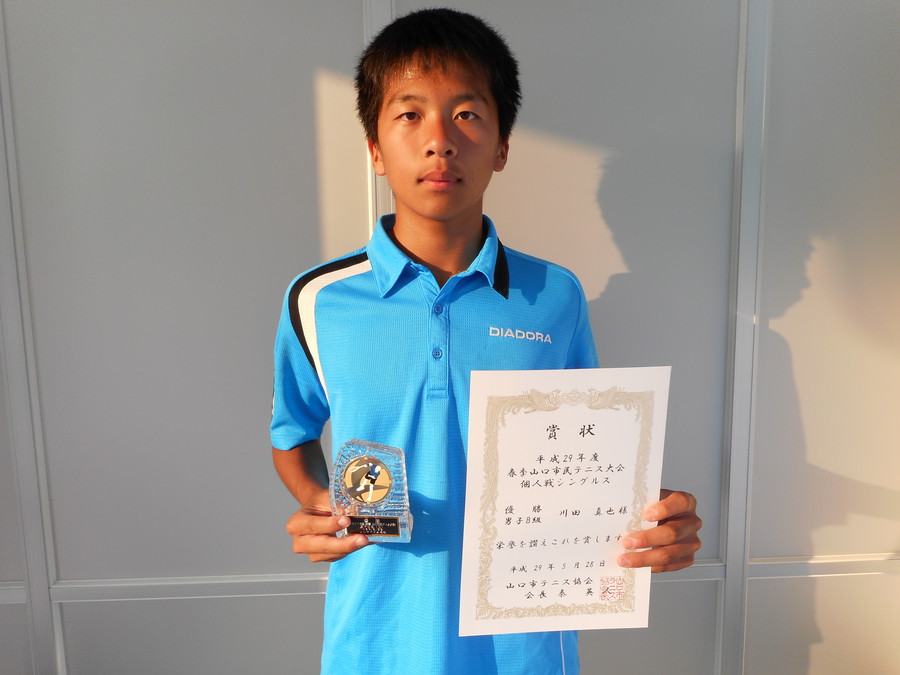 DIADORA
賞状
平成29年度
春季山口市民テニス大会
個人戦シングルス
優勝
男子B級 川田 真也様
栄誉を讃えこれを賞します
平成29年5月28日
山口市テニス協会
会長 泰 英